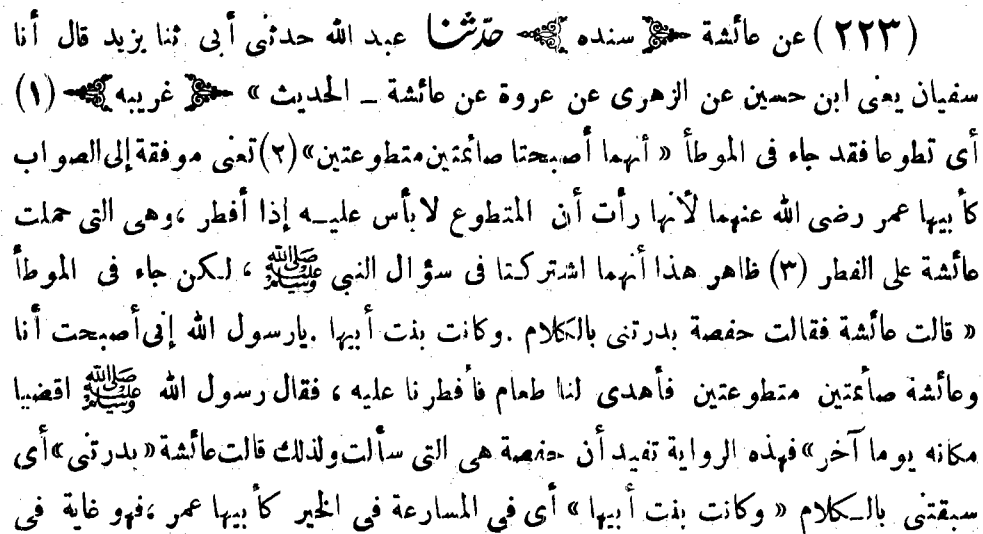 (٢٢٣) عن عائشة ﴿ سنده ﴾ حدّثنا عبد الله حدثنى أبى ثنا يزيد قال أنا
سفيان يعنى ابن حسين عن الزهرى عن عروة عن عائشة ـ الحديث » ﴿ غريبه ﴾ (١)
أى تطوعا فقد جاء فى الموطأ « أنهما أصبحتا صائمتين متطوعتين» (٢) تعنى موفقة إلى الصواب
كأبيها عمر رضى الله عنهما لأنها رأت أن المتطوع لابأس عليه إذا أفطر ،وهى التى حملت
عائشة على الفطر (٣) ظاهر هذا أنهما اشتركتا فى سؤال النبى ﷺ ، لكن جاء فى الموطأ
« قالت عائشة فقالت حفصة بدرتنى بالكلام .وكانت بنت أبيها .يارسول الله إنى أصبحت أنا
وعائشة صائمتين متطوعتين فأهدى لنا طعام فأفطرنا عليه ، فقال رسول الله ﷺ اقضيا
مكانه يوما آخر» فهذه الرواية تفيد أن حفصة هى التى سألت ولذلك قالت عائشة «بدرتنى» أى
سبقتنى بالكلام « وكانت بنت أبيها » أى فى المسارعة فى الخير كأبيها عمر ،فهو غاية فى